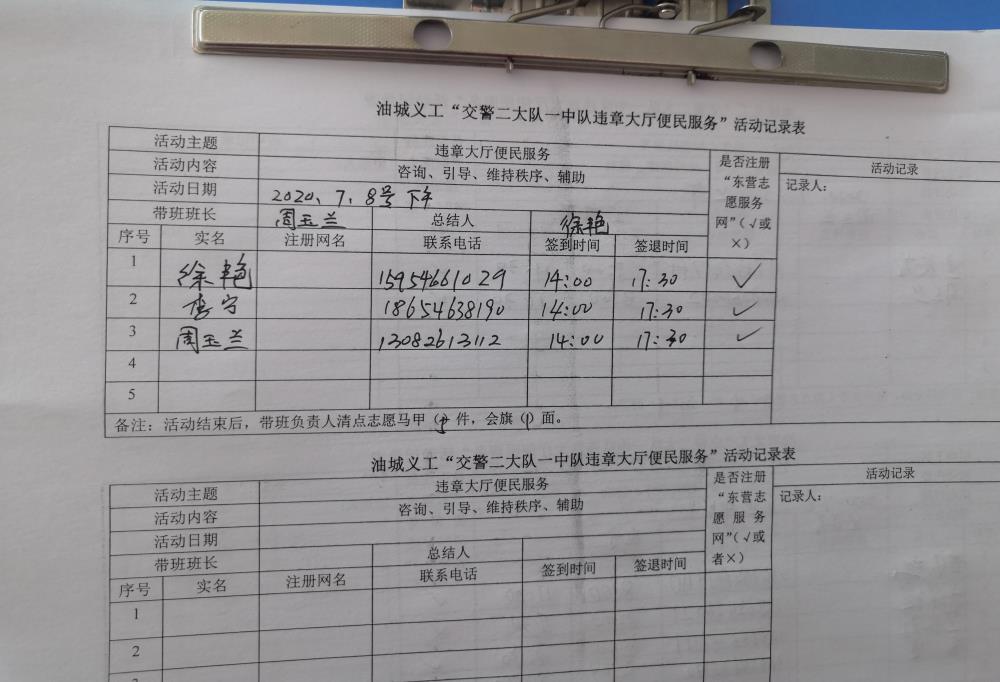 油城义工“交警二大队一中队违章大厅便民服务”活动记录表
活动主题 违章大厅便民服务 是否注册“东营志愿服务网”(√或×) 活动记录
活动内容 咨询、引导、维持秩序、辅助 记录人:
活动日期 2020、7、8号 下午
带班班长 周玉兰 总结人 徐艳
序号 实名 注册网名 联系电话 签到时间 签退时间
1 徐艳 15954661029 14:00 17:30 √
2 李宁 18654638190 14:00 17:30 √
3 周玉兰 13082613112 14:00 17:30 √
4
5
备注:活动结束后,带班负责人清点志愿马甲()件,会旗(1)面。
油城义工“交警二大队一中队违章大厅便民服务”活动记录表
活动主题 违章大厅便民服务 是否注册“东营志愿服务网”(√或者×) 活动记录
活动内容 咨询、引导、维持秩序、辅助 记录人:
活动日期
带班班长 总结人
序号 实名 注册网名 联系电话 签到时间 签退时间
1
2